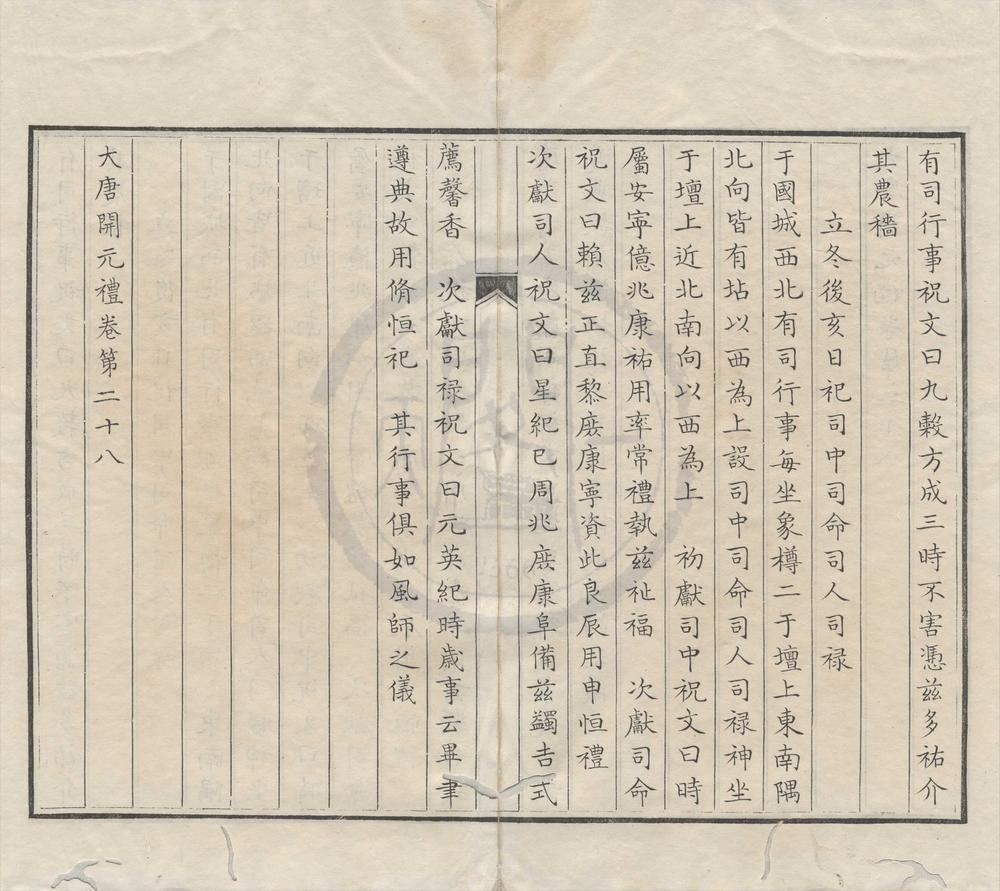 有司行事祝文曰九穀方成三時不害憑茲多祐介
其農穡
立冬後亥日祀司中司命司人司禄
于國城西北有司行事每坐象樽二于壇上東南隅
北向皆有坫以西為上設司中司命司人司禄神坐
于壇上近北南向以西為上 初獻司中祝文曰時
屬安寧億兆康祐用率常禮執茲祉福 次獻司命
祝文曰賴茲正直黎庻康寧資此良辰用申恒禮
次獻司人祝文曰星紀已周兆庻康阜備茲蠲吉式
薦馨香 次獻司禄祝文曰元英紀時歲事云畢聿
遵典故用脩恒祀 其行事俱如風師之儀
大唐開元禮卷第二十八